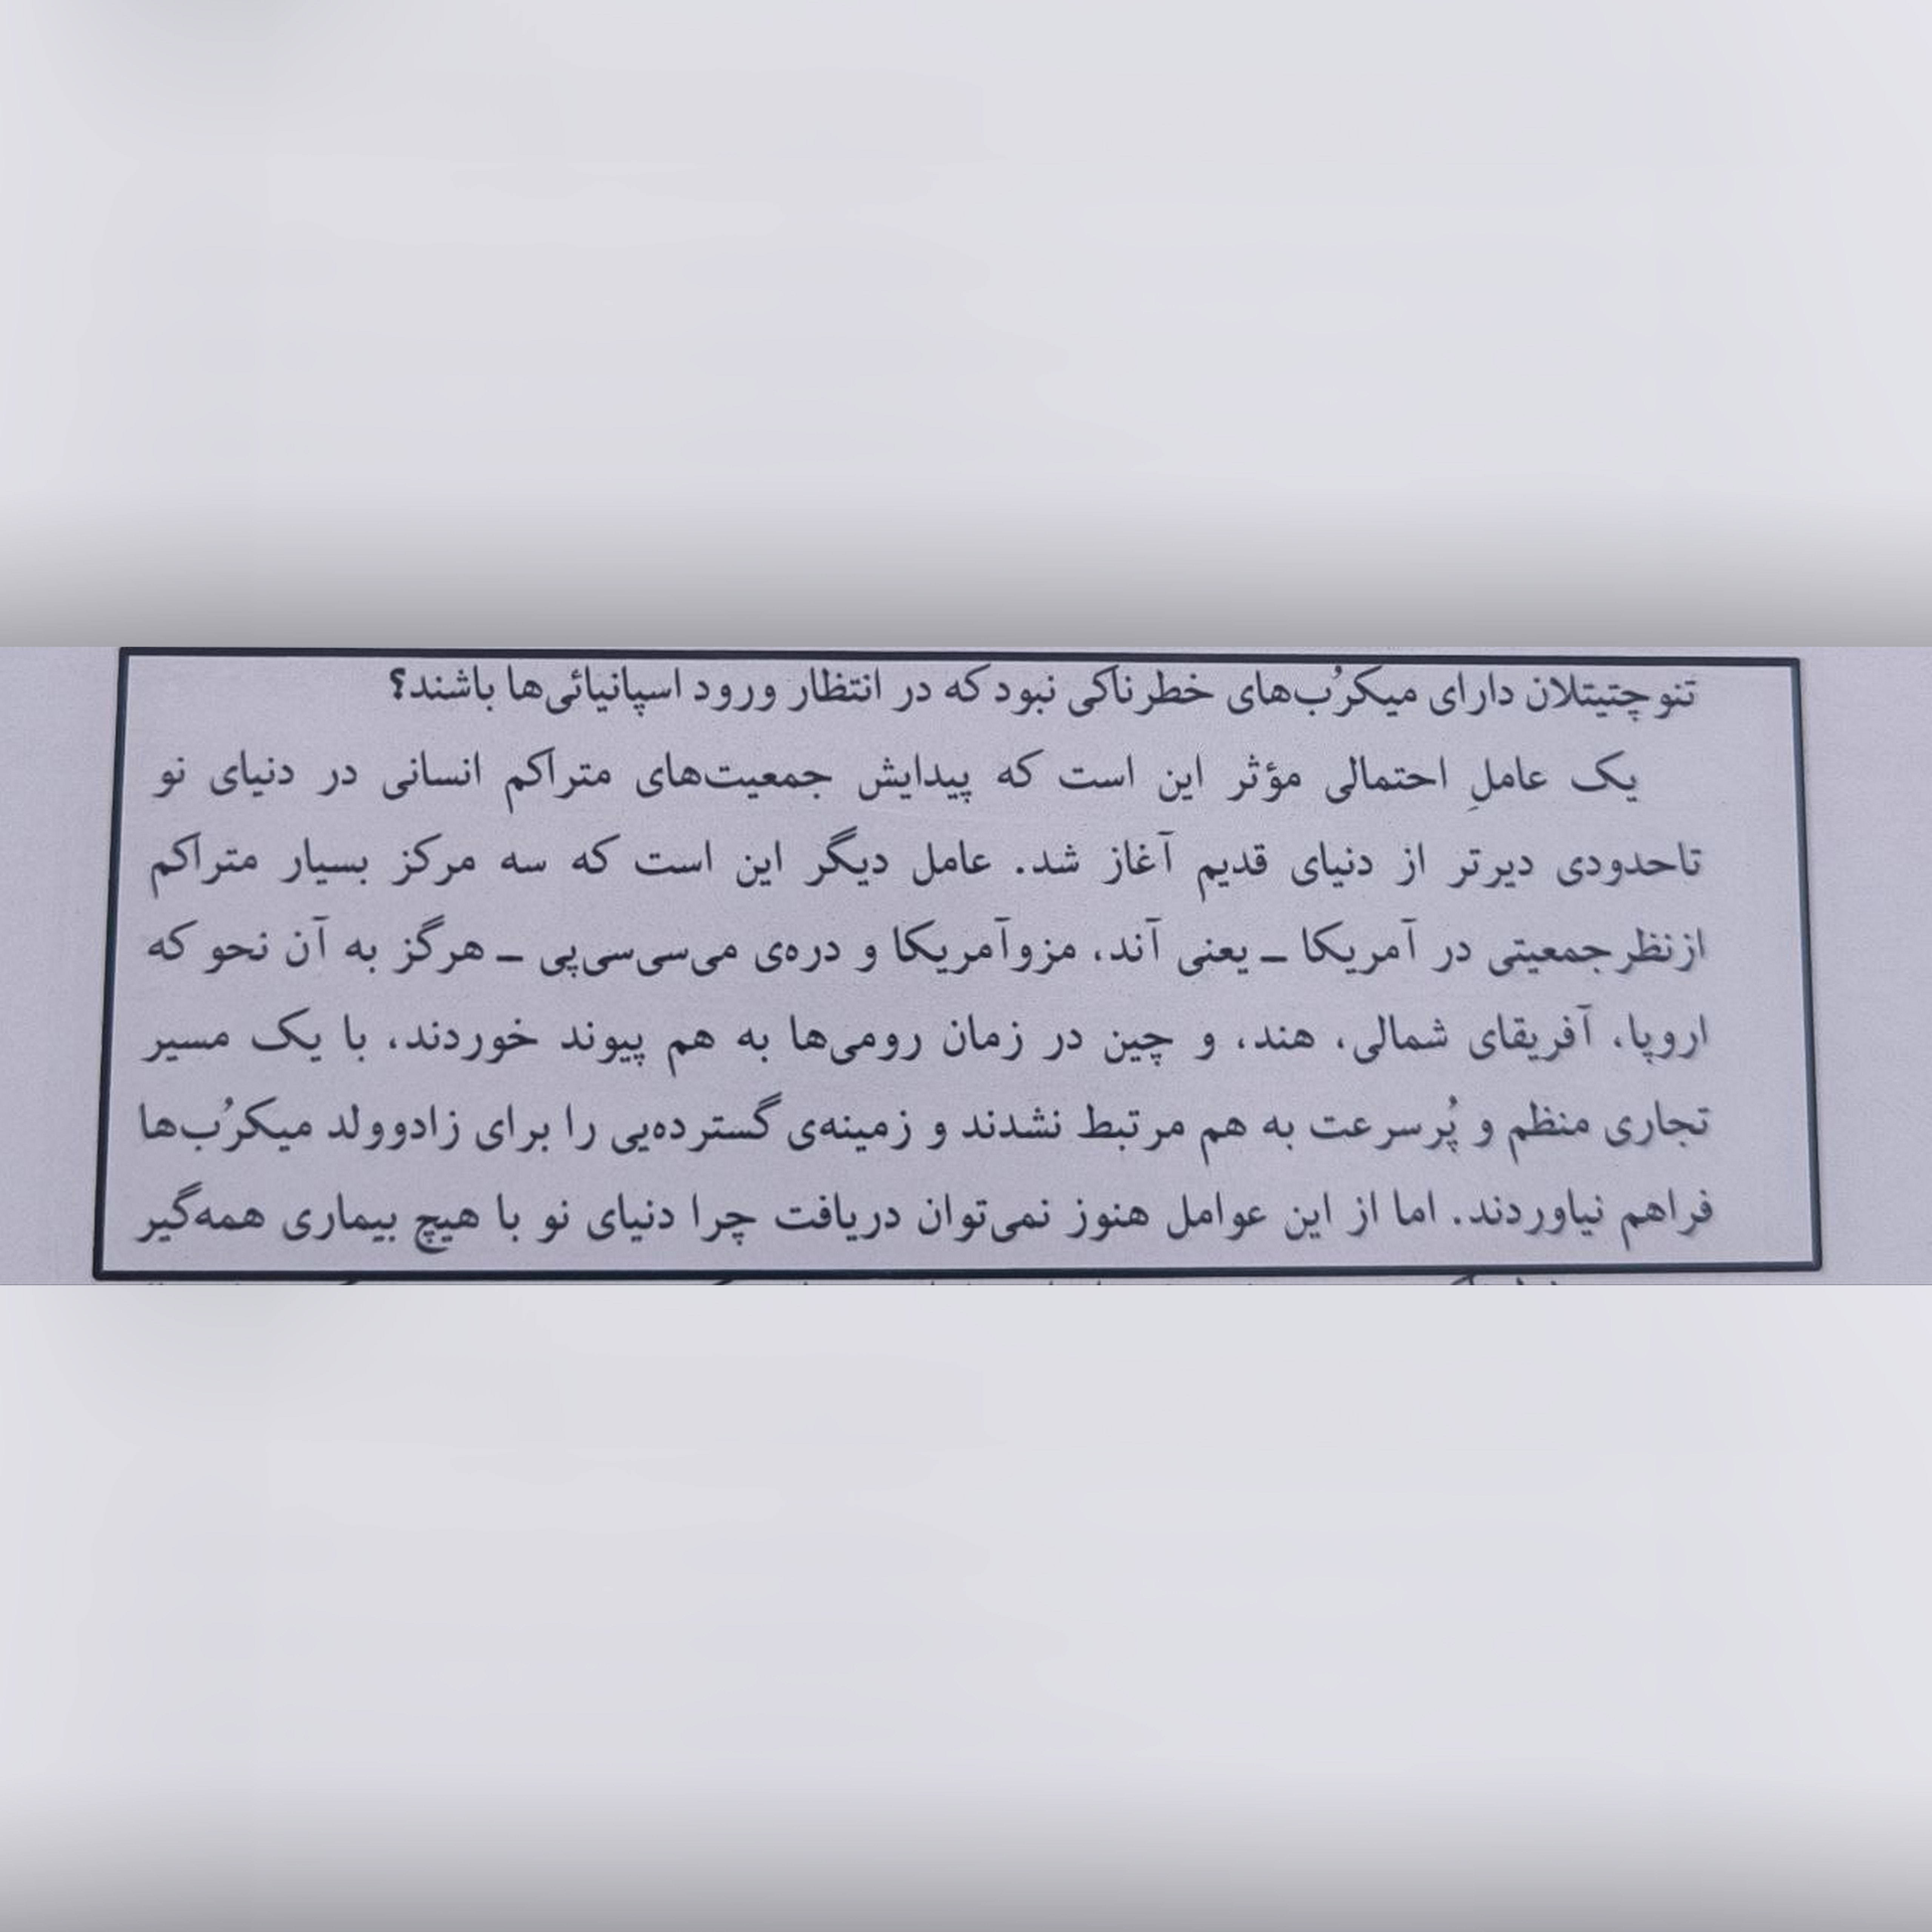 تنوچتیتلان دارای میکرُب‌های خطرناکی نبود که در انتظار ورود اسپانیائی‌ها باشند؟
یک عاملِ احتمالی مؤثر این است که پیدایش جمعیت‌های متراکم انسانی در دنیای نو
تاحدودی دیرتر از دنیای قدیم آغاز شد. عامل دیگر این است که سه مرکز بسیار متراکم
ازنظر جمعیتی در آمریکا ـ یعنی آند، مزوآمریکا و دره‌ی می‌سی‌سی‌پی ـ هرگز به آن نحو که
اروپا، آفریقای شمالی، هند، و چین در زمان رومی‌ها به هم پیوند خوردند، با یک مسیر
تجاری منظم و پُرسرعت به هم مرتبط نشدند و زمینه‌ی گسترده‌یی را برای زادوولد میکرُب‌ها
فراهم نیاوردند. اما از این عوامل هنوز نمی‌توان دریافت چرا دنیای نو با هیچ بیماری همه‌گیر